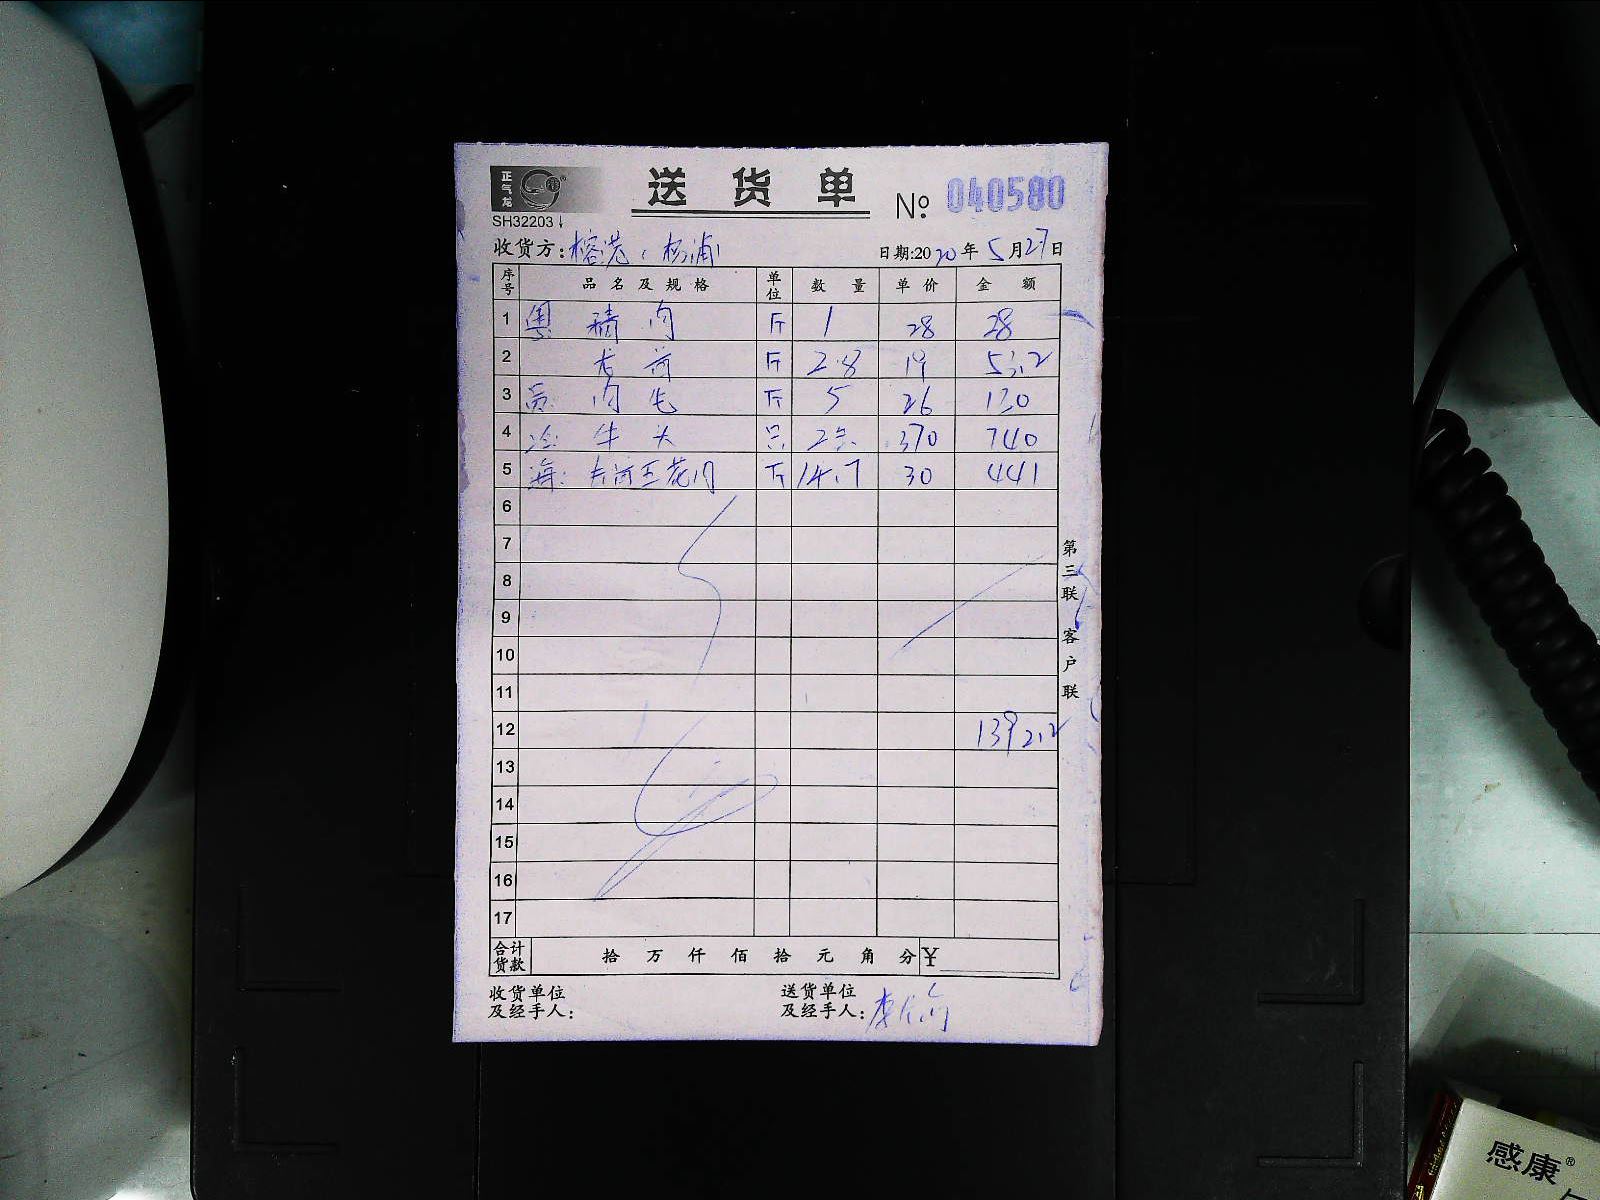 正气龙
送货单 № 040580
SH32203
收货方: 榕港、杨浦 日期:2020年5月27日
序号 品名及规格 单位 数量 单价 金额
1 粤 精肉 斤 1 28 28
2 斤 2.8 19 53.2
3 肉 斤 5 26 130
4 牛头 只 2只 370 740
5 海: 五花肉 斤 14.7 30 441
6
7
8
9
10
11
12 1392.2
13
14
15
16
17
第三联 客户联
合计货款 拾 万 仟 佰 拾 元 角 分 ¥
收货单位 送货单位
及经手人: 及经手人: 李
感康®